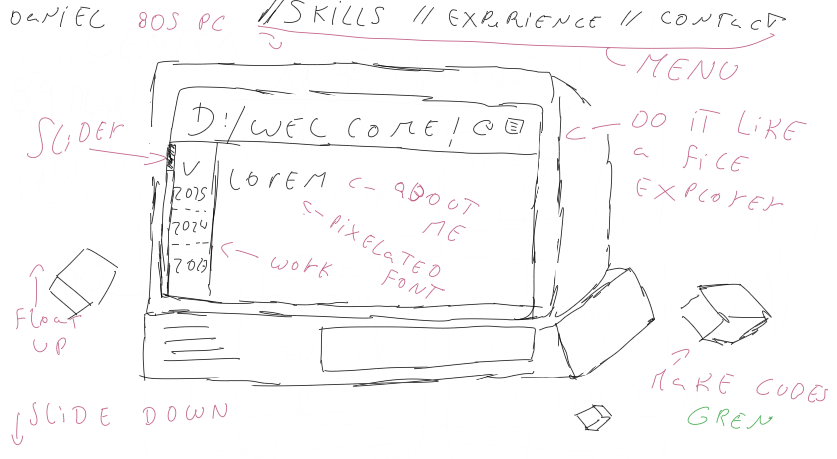 DANIEL 80S PC //SKILLS // EXPERIENCE // CONTACT
MENU
SLIDER
D:/WELCOME!
DO IT LIKE
a FILE
EXPLORER
V
2025
2024
2023
LOREM
ABOUT
ME
PIXELATED
FONT
WORK
FLOAT
UP
MAKE CUDES
GREN
SLIDE DOWN